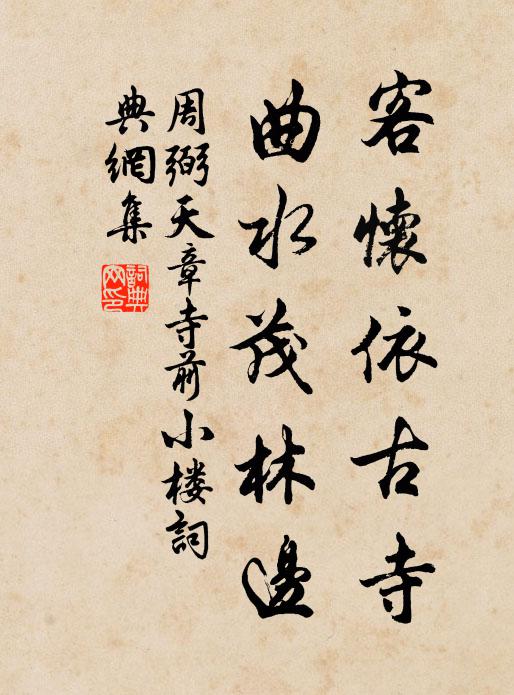 客懷依古寺
曲水茂林邊
周弼天章寺前小楼詞
典網集
詞典
网印